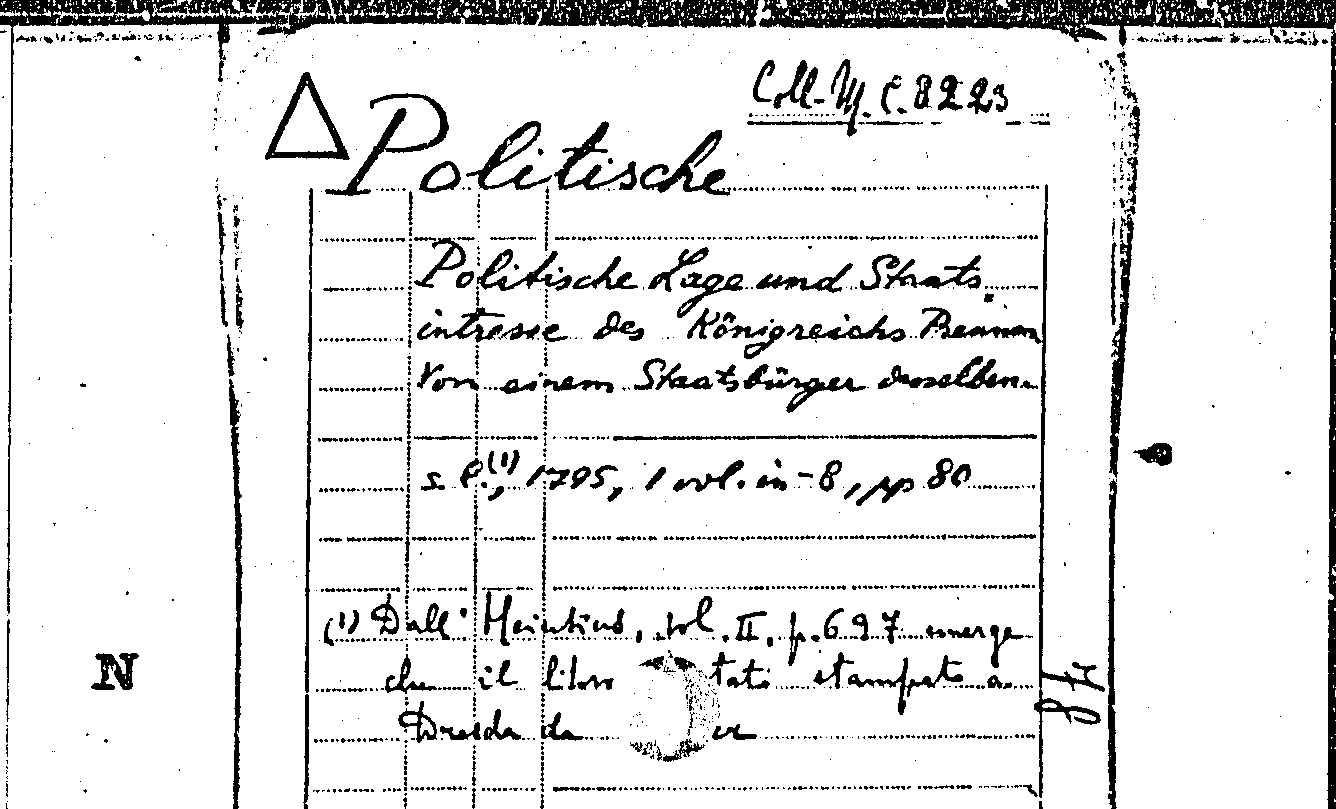 Coll. M. C. 8223
Politische
Politische Lage und Staats
intresse des Königreichs Preussen
Von einem Staatsbürger desselben.
s. l.(1), 1795, 1 vol. in-8, pp 80
(1) Dall' Heinsius, vol. II, p. 697 emerge
che il libro stato stampato a
Dresda da
N